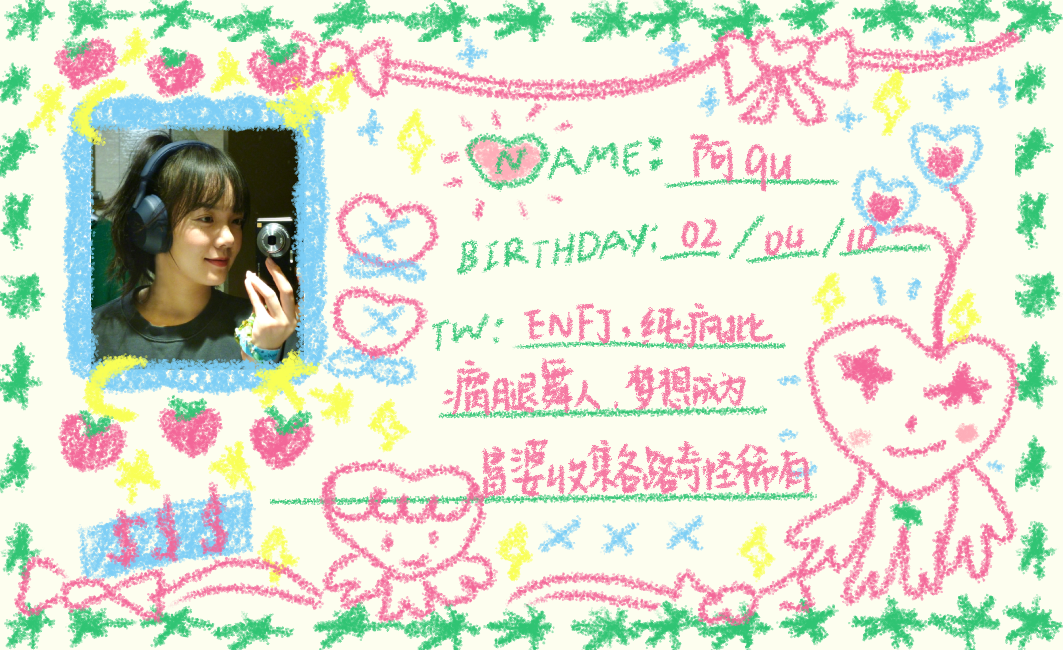 NAME: 阿qu
BIRTHDAY: 02/04/10
TW: ENFJ,纯疯批
腿舞人 梦想成为
富婆收集各路奇怪稀有